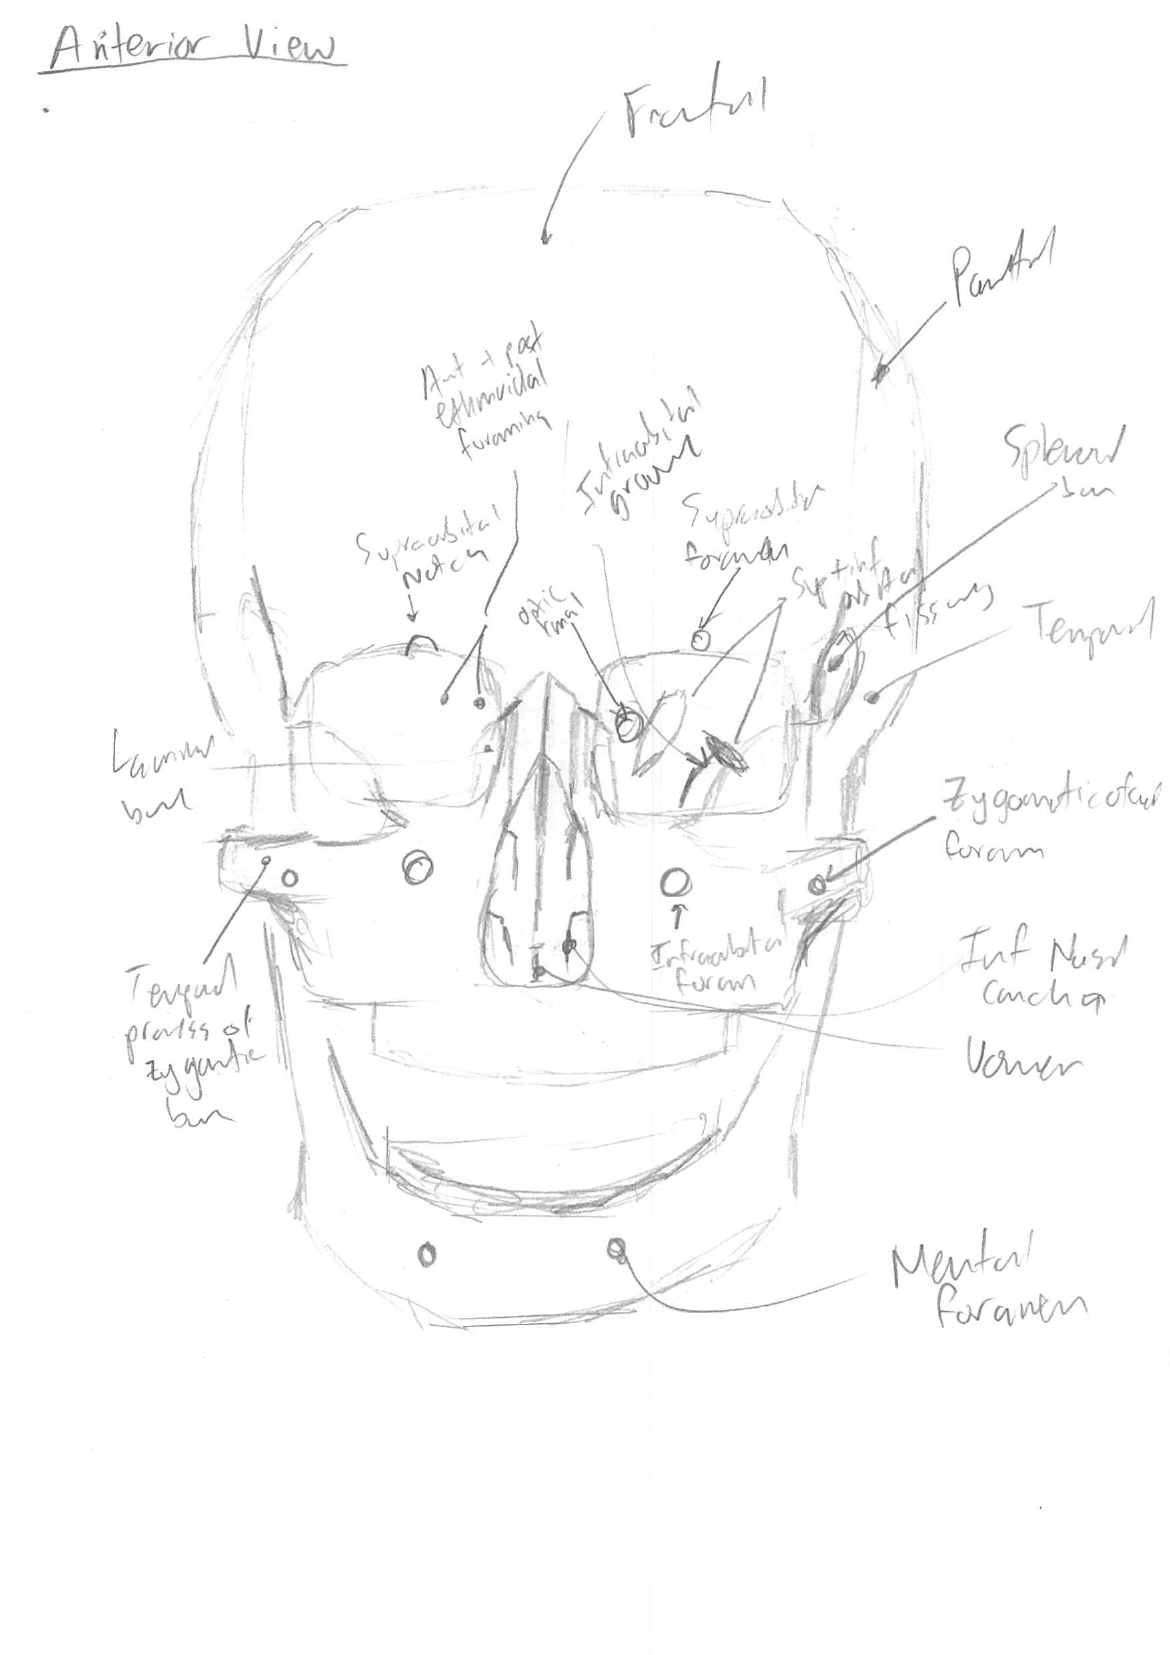 Anterior View
Frontal
Parietal
Ant + post
ethmoidal
foramina
Infraorbital
groove
Sphenoid
bone
Supraorbital
notch
Supraorbital
foramen
Sup + inf
orbital
fissures
optic
canal
Temporal
Lacrimal
bone
Zygomaticofacial
foramen
Infraorbital
foramen
Temporal
process of
zygomatic
bone
Inf Nasal
Concha
Vomer
Mental
foramen